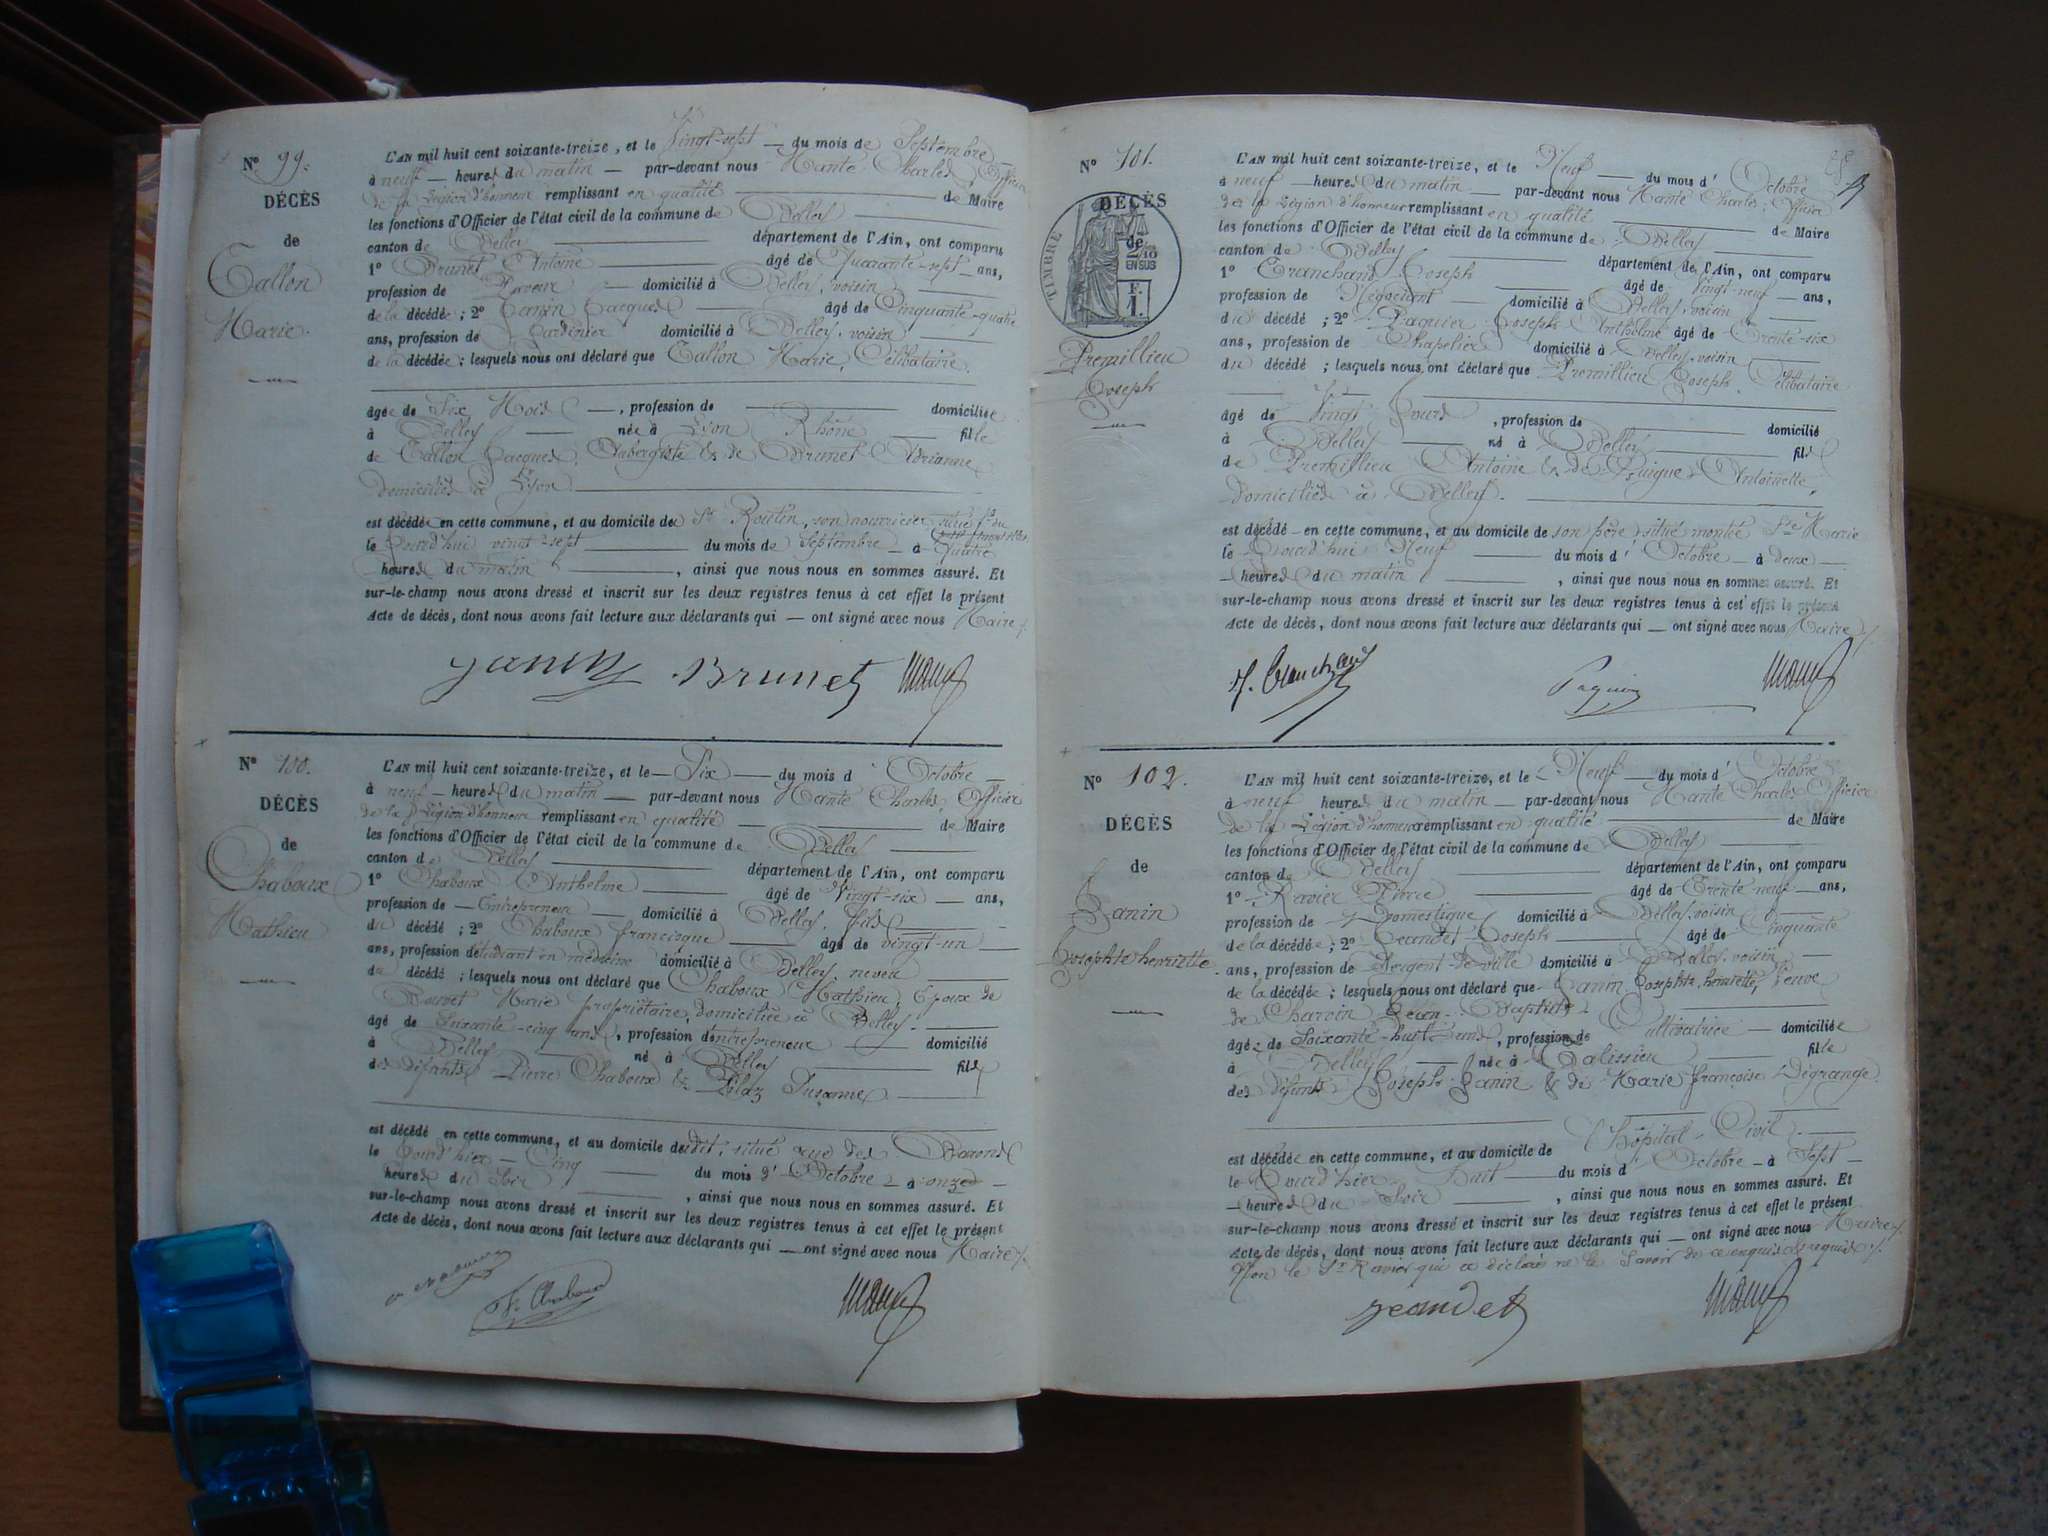 N° 99.
DÉCÈS
de
Tallon
Marie.
L'AN mil huit cent soixante-treize, et le Vingt-sept du mois de Septembre
à neuf heures du matin par-devant nous Charles Officier
de la Légion d'honneur remplissant en qualité de Maire
les fonctions d'Officier de l'état civil de la commune de Belley
canton de Belley département de l'Ain, ont comparu
1° Brunet Antoine âgé de Quarante-sept ans,
profession de domicilié à Belley, voisin
de la décédée ; 2° Janin Jacques âgé de Cinquante-quatre
ans, profession de Jardinier domicilié à Belley, voisin
de la décédée ; lesquels nous ont déclaré que Tallon Marie, Célibataire,
âgée de Six Mois, profession de domiciliée
à Belley née à Lyon Rhône fille
de Tallon Jacques, Aubergiste & de Brunet Adrianne
domiciliés à Lyon
est décédée en cette commune, et au domicile de Sr Routin, son nourricier situé
le jourd'hui vingt-sept du mois de Septembre à quatre
heures du matin, ainsi que nous nous en sommes assuré. Et
sur-le-champ nous avons dressé et inscrit sur les deux registres tenus à cet effet le présent
Acte de décès, dont nous avons fait lecture aux déclarants qui ont signé avec nous Maire
Janin Brunet
N° 100.
DÉCÈS
de
Chaboux
Mathieu
L'AN mil huit cent soixante-treize, et le Six du mois d'Octobre
à neuf heures du matin par-devant nous Charles Officier
de la Légion d'honneur remplissant en qualité de Maire
les fonctions d'Officier de l'état civil de la commune de Belley
canton de Belley département de l'Ain, ont comparu
1° Chaboux Anthelme âgé de Vingt-six ans,
profession de Entrepreneur domicilié à Belley, fils
du décédé ; 2° Chaboux francisque âgé de vingt-un
ans, profession d'étudiant en médecine domicilié à Belley, neveu
du décédé ; lesquels nous ont déclaré que Chaboux Mathieu, Epoux de
Bouvet Marie propriétaire, domiciliée à Belley
âgé de Soixante-cinq ans, profession d'entrepreneur domicilié
à Belley né à Belley fils
des défunts Pierre Chaboux & Pilaz Suzanne
est décédé en cette commune, et au domicile dudit, situé rue des Barons
le jourd'hier Cinq du mois d'Octobre à onze
heures du Soir, ainsi que nous nous en sommes assuré. Et
sur-le-champ nous avons dressé et inscrit sur les deux registres tenus à cet effet le présent
Acte de décès, dont nous avons fait lecture aux déclarants qui ont signé avec nous Maire
N° 101.
DÉCÈS
de
TIMBRE
2/10
EN SUS
F.
1.
Premillieu
Joseph
L'AN mil huit cent soixante-treize, et le Neuf du mois d'Octobre
à neuf heures du matin par-devant nous Charles, Officier
de la Légion d'honneur remplissant en qualité de Maire
les fonctions d'Officier de l'état civil de la commune de Belley
canton de Belley département de l'Ain, ont comparu
1° Tranchand Joseph âgé de Vingt-neuf ans,
profession de Négociant domicilié à Belley, voisin
du décédé ; 2° Paquier Joseph Anthelme âgé de Trente-six
ans, profession de Chapelier domicilié à Belley, voisin
du décédé ; lesquels nous ont déclaré que Premillieu Joseph, Célibataire
âgé de Vingt Jours, profession de domicilié
à Belley né à Belley fils
de Premillieu Antoine & de Antoinette,
domiciliés à Belley.
est décédé en cette commune, et au domicile de son père situé montée Ste Marie
le Jourd'hui Neuf du mois d'Octobre à deux
heures du matin, ainsi que nous nous en sommes assuré. Et
sur-le-champ nous avons dressé et inscrit sur les deux registres tenus à cet effet le présent
Acte de décès, dont nous avons fait lecture aux déclarants qui ont signé avec nous Maire
N° 102.
DÉCÈS
de
Janin
Josephte henriette.
L'AN mil huit cent soixante-treize, et le Neuf du mois d'Octobre
à neuf heures du matin par-devant nous Charles Officier
de la Légion d'honneur remplissant en qualité de Maire
les fonctions d'Officier de l'état civil de la commune de Belley
canton de Belley département de l'Ain, ont comparu
1° Ravier Pierre âgé de Trente-neuf ans,
profession de Domestique domicilié à Belley, voisin
de la décédée ; 2° Jeandet Joseph âgé de Cinquante
ans, profession de Sergent-de-ville domicilié à Belley, voisin
de la décédée ; lesquels nous ont déclaré que Janin Josephte, henriette, Veuve
de Charvin Jean-Baptiste
âgée de Soixante-huit ans, profession de Cultivatrice domiciliée
à Belley née à Talissieu fille
des défunts Joseph Janin & de Marie françoise Dégrange
est décédée en cette commune, et au domicile de l'hôpital-Civil
le Jourd'hier Huit du mois d'Octobre à Sept
heures du Soir, ainsi que nous nous en sommes assuré. Et
sur-le-champ nous avons dressé et inscrit sur les deux registres tenus à cet effet le présent
Acte de décès, dont nous avons fait lecture aux déclarants qui ont signé avec nous Maire
Non le Sr Ravier qui a déclaré ne le Savoir de ce enquis & requis
Jeandet